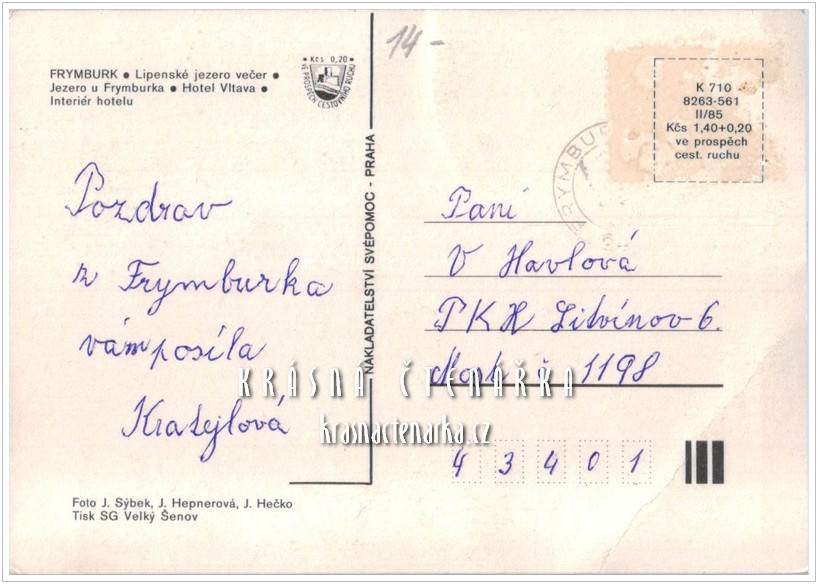 14-
FRYMBURK • Lipenské jezero večer •
Jezero u Frymburka • Hotel Vltava •
Interiér hotelu
• Kčs 0,20 •
VE PROSPĚCH CESTOVNÍHO RUCHU
K 710
8263-561
II/85
Kčs 1,40+0,20
ve prospěch
cest. ruchu
FRYMBU
Pozdrav
z Frymburka
vám posíla
NAKLADATELSTVÍ SVÉPOMOC - PRAHA
Paní
V Havlová
PKH Litvínov 6.
Most č 1198
43401
KRÁSNÁ ČTENÁŘKA
krasnactenarka.cz
Foto J. Sýbek, J. Hepnerová, J. Hečko
Tisk SG Velký Šenov